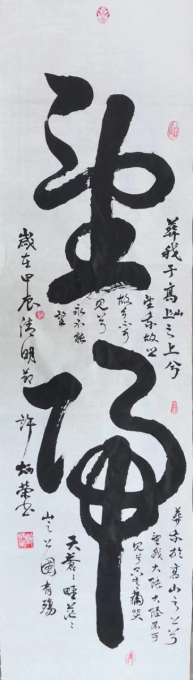 望歸
葬我于高山之上兮
望我故鄉
故鄉不可
見兮
永不能
忘
葬我於高山之上兮
望我大陸大陸不可
見兮只有痛哭
天蒼蒼野茫茫
山之上國有殤
歲在甲辰清明節許炳榮書